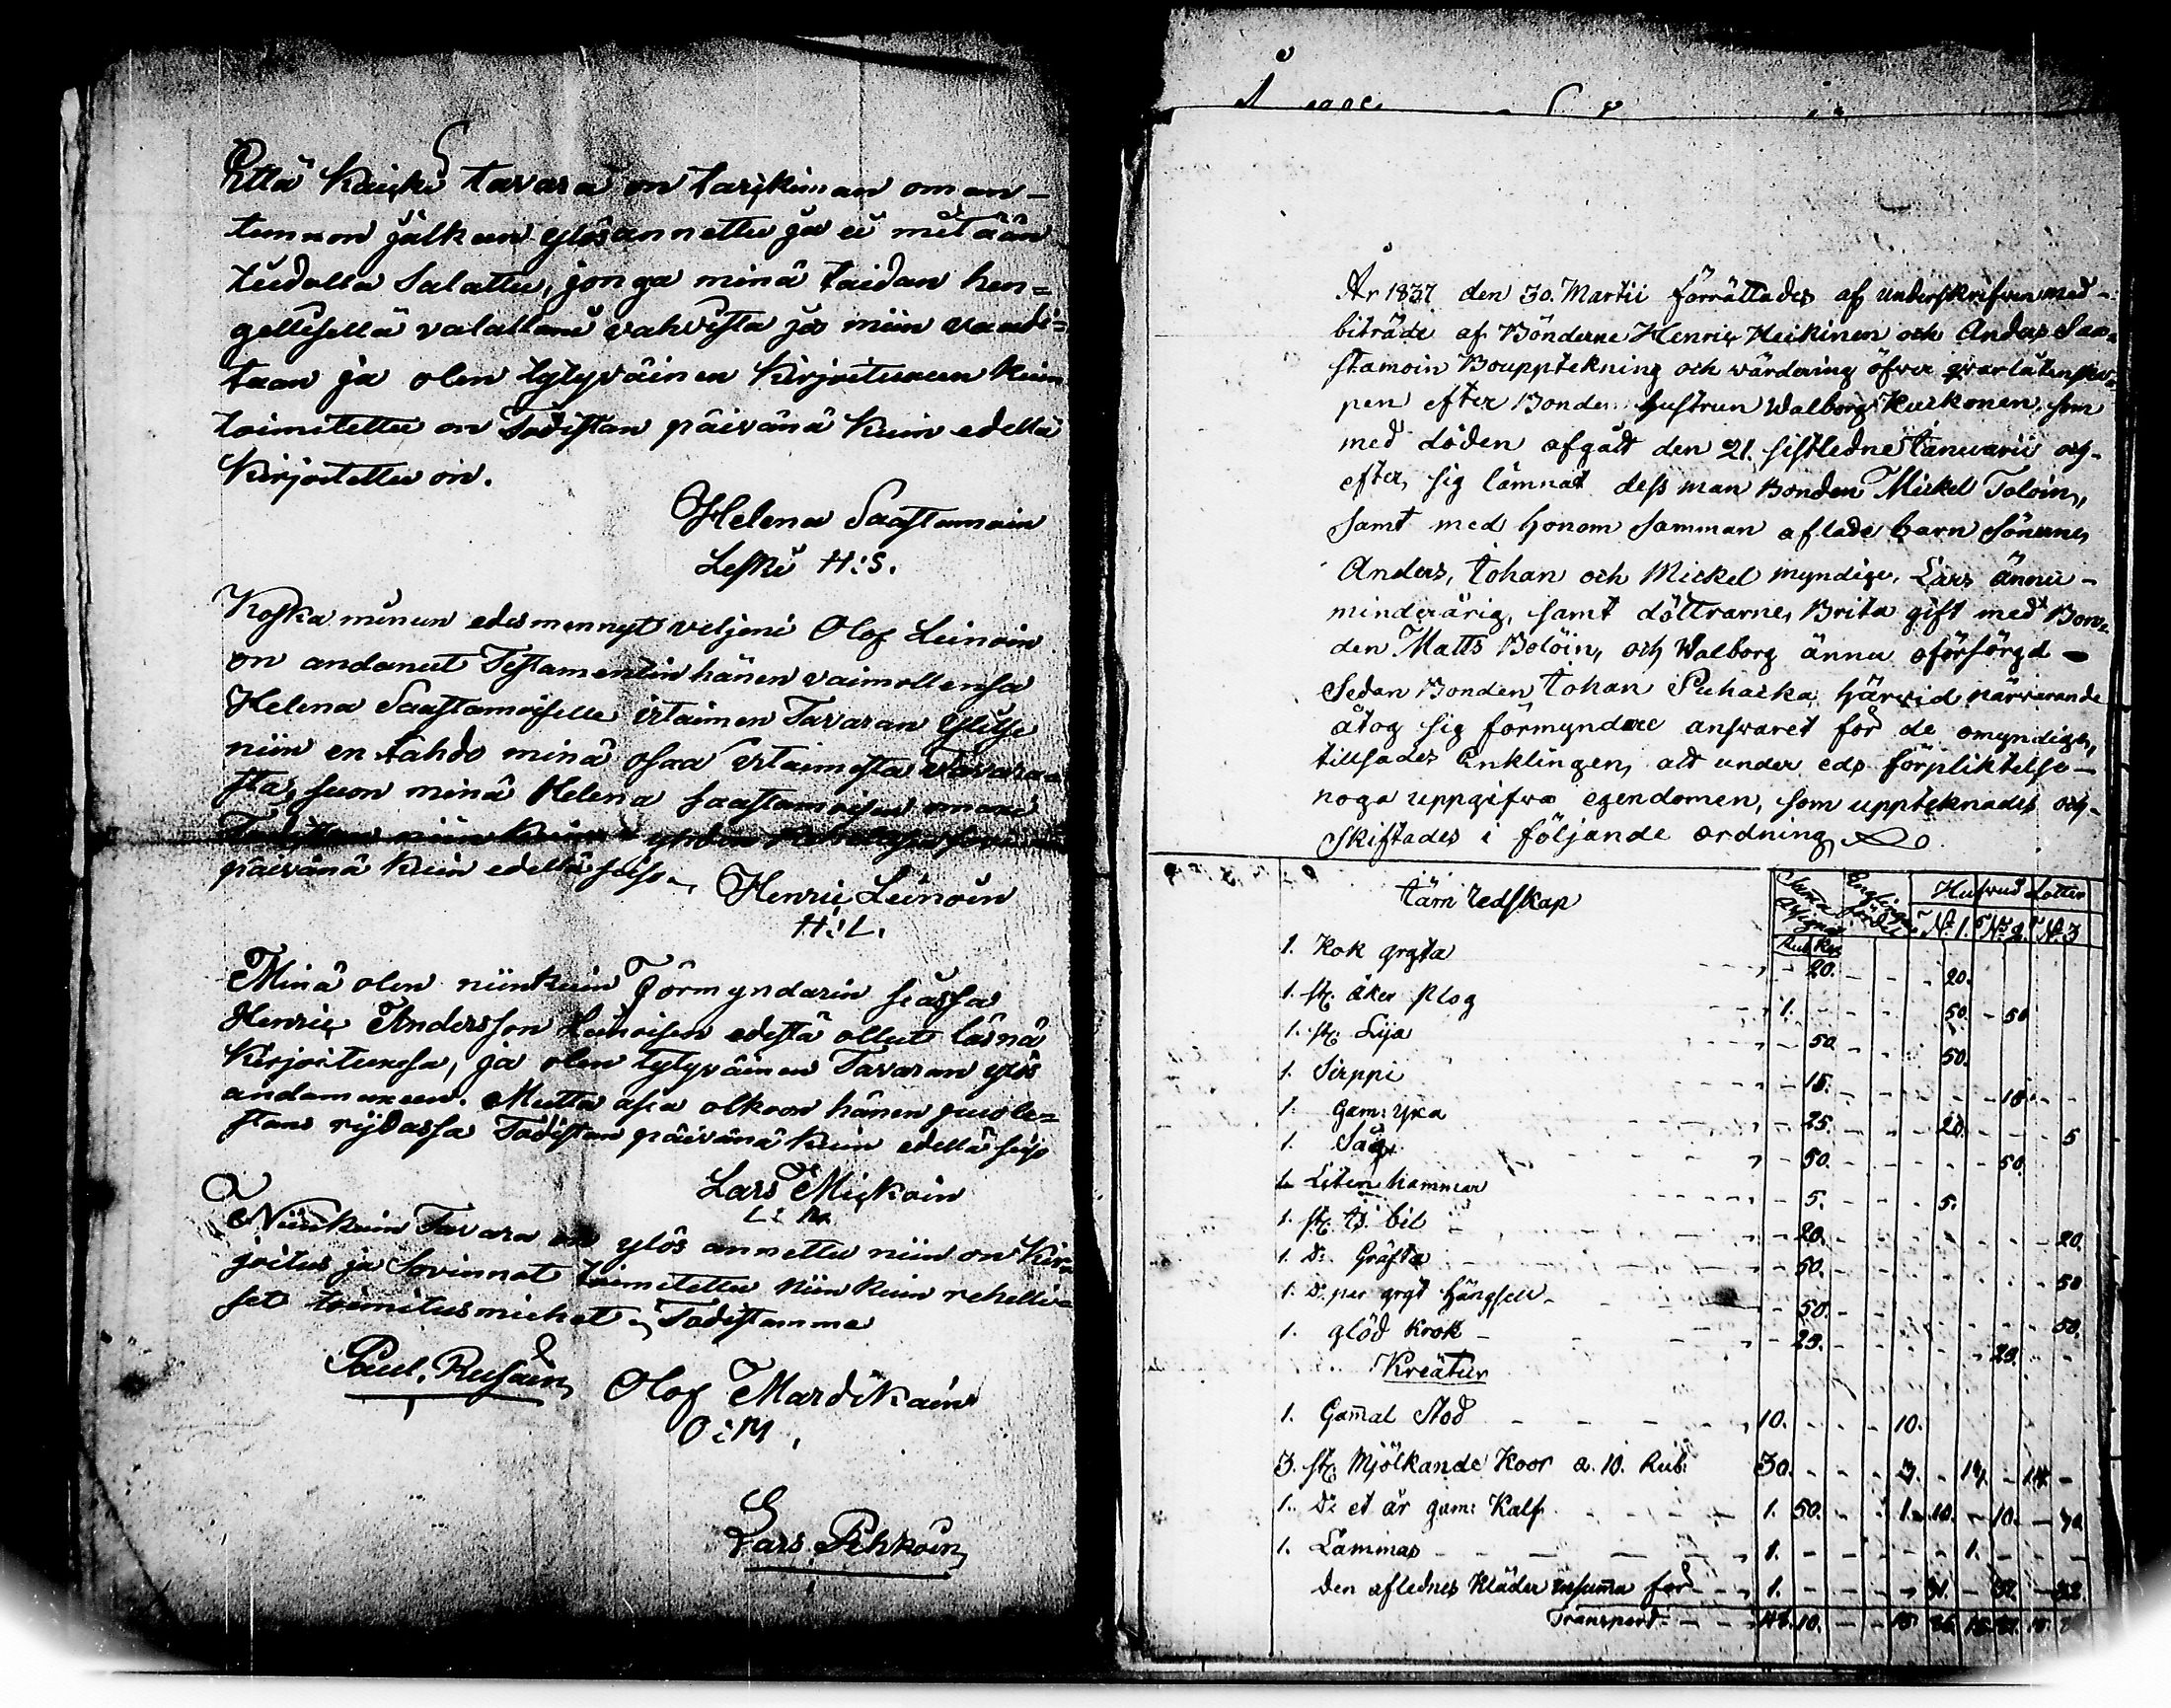 Että Kaicki tavara on tarckiman oman-
tunnon jälkeen ylösannettu ja ei mitään
tiedolla Salattu, jonga minä taidan hen=
gellisellä valallani vahvista jos niin vaadi=
taan ja olen tytyväinen Kirjoituxeen kuin
toimitettu on Todistan päivänä kuin edellä
Kirjoitettu on.
Helena Saastamoin
Leski H:S.
Koska minun edesmennyt veljeni Olof Leinoin
on andanut Testamentin hänen vaimollensa
Helena Saastamoiselle irtaimen Tavaran ylitse
niin en tahdo minä osaa irtaimesta Tavara=
sta, suon minä Helena Saastamoisen omaxi
Todistan niin kuin
päivänä kuin edellä seiso.
Henric Leinoin
H:L.
Minä olen niinkuin Förmyndarin siassa
Henric Andersson Leinoisen edestä ollut läsnä
Kirjoituxesa, ja olen tytyväinen Tavaran ylös
andamuxeen. Mutta asia olkoon hänen puole=
stans rijdassa Todistan päivänä kuin edellä seiso
Lars Mickoin
L:M.
Niinkuin Tavara on ylös annettu niin on Kir=
joitus ja Sovinnot toimitettu niin kuin rehelli=
set toimitusmiehet Todistamme
Paul. Rusain Olof Mardikain
O:M.
Lars Pehkoin
År 1837 den 30. Martii förrättades af underskrifven med-
biträde af Bönderne Henric Heikinen och Anders Saa=
stamoin Bouppteckning och värdering öfver qvarlåtenska=
pen efter Bonde hustrun Walborg Kuckonen, som
med döden afgått den 21. sistledne Januarii och
efter sig lämnat dess man Bonden Mickel Toloin,
samt med honom samman aflade barn Sönerne,
Anders, Johan och Mickel myndige, Lars ännu-
minderårig, samt döttrarne, Brita gift med Bon=
den Matts Bolöin, och Walborg ännu oförsörgd -
Sedan Bonden Johan Puhacka härvid närvarande
åtog sig förmyndare ansvaret för de omyndige,
tillsades Enklingen, att under eds förpliktelse-
noga uppgifva egendomen, som uppteknades och-
skiftades i följande ordning,
Järn redskap Suma Asignat Enklings fördel Hufvud Lotter
Rub Kop N:1. N:2. N:3
1. Kok gryta - 20. - 20.
1. st. åker Plog 1. - 50. - 50
1. st. Lija - 50 - 50.
1. Sirppi - 15. - 15.
1. gam: yxa - 25. - 20. - 5
1. Såg - 50. - 50.
1. Liten hammar - 5. - 5.
1. st. is bil - 20. - 20.
1. D: Gräfta - 50. - 50
1. D: par gryt hängslor - 50. - 50.
1. glöd krok - 25. - 25.
Kreatur
1. Gamal Stod 10. - 10.
3. st. Mjölkande Koor a. 10. Rub: 30.
1. D: et år gam: Kalf 1. 50.
1. Lammas 1. - 1.
den aflednes Kläder insuma för 1.
Transport